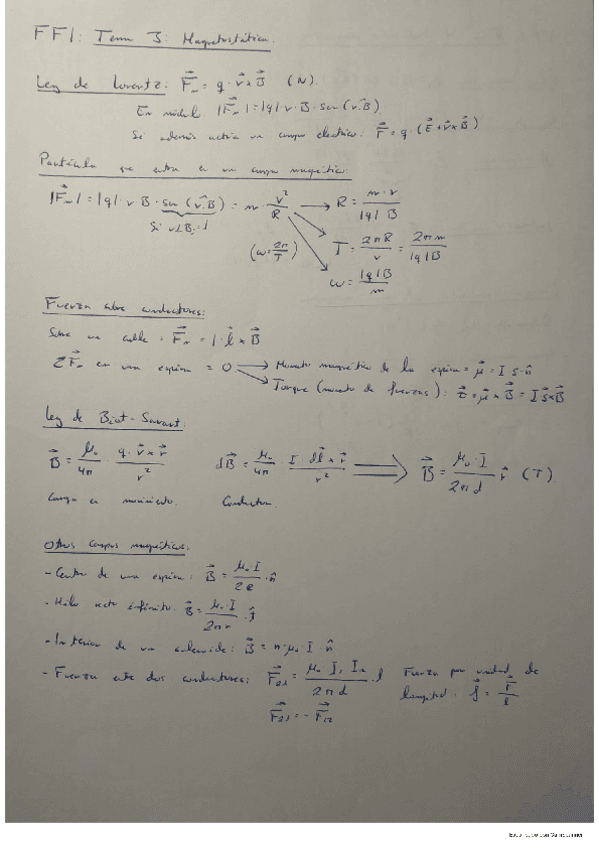 FFI: Tema 3: Magnetostática.
Ley de Lorentz: F⃗ₘ = q · v⃗ × B⃗ (N).
En módulo: |F⃗ₘ| = |q| · v · B · sen(v⃗,B⃗)
Si además actúa un campo eléctrico: F⃗ = q · (E⃗ + v⃗ × B⃗)
Partícula que entra en un campo magnético:
|F⃗ₘ| = |q| · v · B · sen(v⃗,B⃗) = m · v²/R → R = m · v / |q| B
Si v⊥B: 1
(ω = 2π/T) T = 2πR/v = 2πm/|q|B
ω = |q|B/m
Fuerza sobre conductores:
Sobre un cable: F⃗ₘ = I · l⃗ × B⃗
ΣF⃗ₘ en una espira = 0 → Momento magnético de la espira = μ⃗ = I · s · n̂
→ Torque (momento de fuerzas): τ⃗ = μ⃗ × B⃗ = I s⃗ × B⃗
Ley de Biot-Savart:
B⃗ = μ₀/4π · q · v⃗ × r⃗ / r² dB⃗ = μ₀/4π · I dl⃗ × r⃗ / r² ⟹ B⃗ = μ₀ · I / 2πd r̂ (T)
Carga en movimiento. Conductor.
Otros campos magnéticos:
- Centro de una espira: B⃗ = μ₀ I / 2R · n̂
- Hilo recto infinito: B⃗ = μ₀ · I / 2πr ·
- Interior de un solenoide: B⃗ = n · μ₀ · I · n̂
- Fuerza entre dos conductores: F⃗₂₁ = μ₀ I₁ I₂ / 2πd · l Fuerza por unidad de
longitud: f⃗ = F⃗/l
F⃗₂₁ = - F⃗₁₂